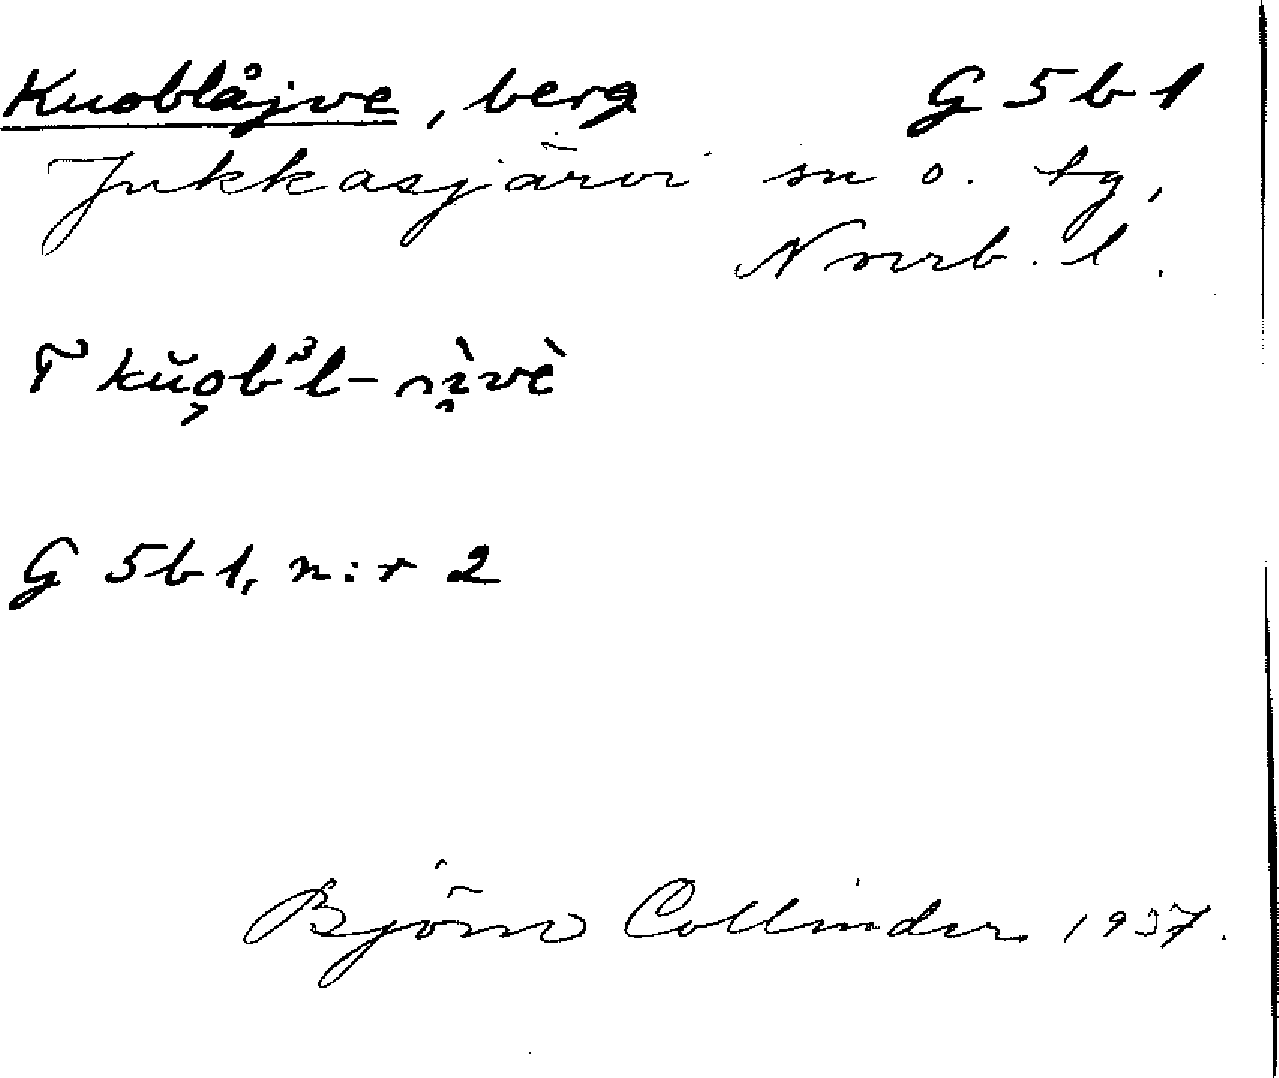 Kuoblåjve, berg G 5 b 1
Jukkasjärvi sn o. tg,
Norrb. l.
G 5 b 1, n:r 2
Björn Collinder 1937.